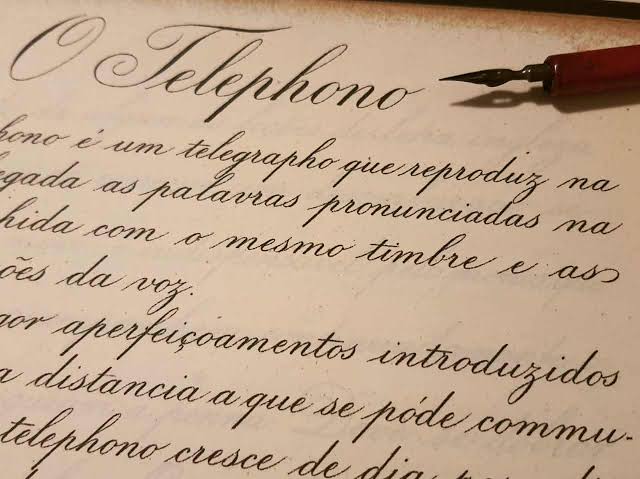 O Telephono
hono é um telegrapho que reproduz na
egada as palavras pronunciadas na
hida com o mesmo timbre e as
ões da voz.
aperfeiçoamentos introduzidos
a distancia a que se póde commu-
telephono cresce de dia